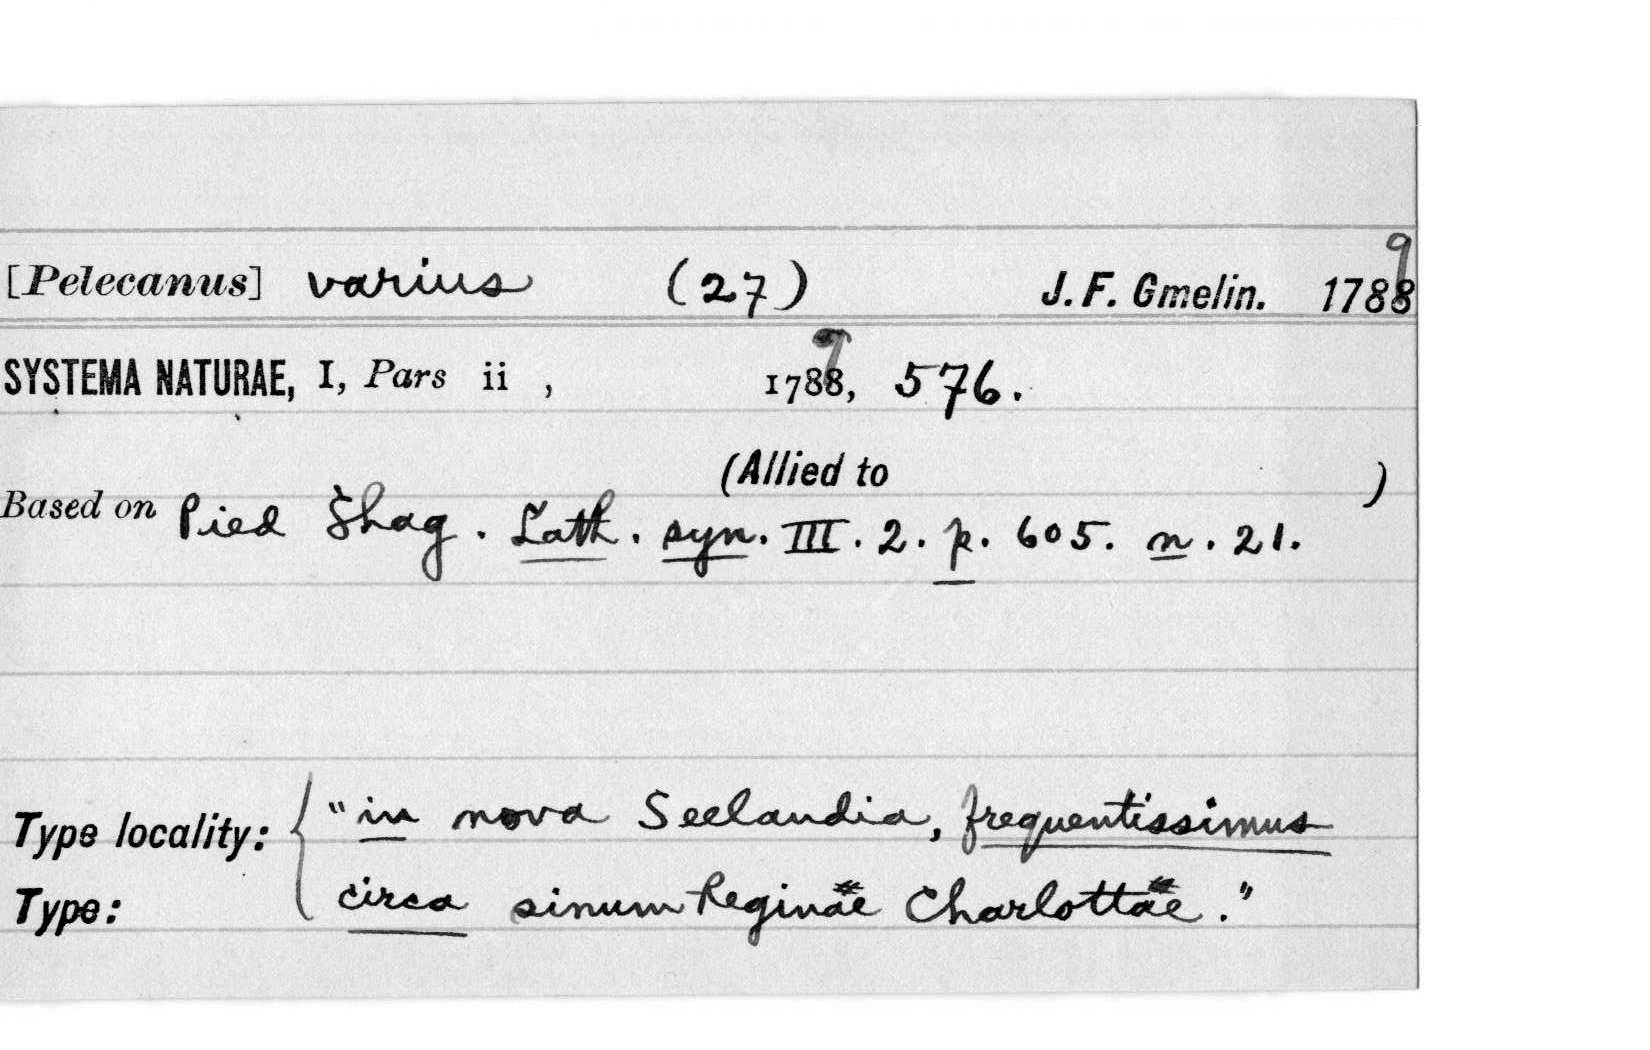 [Pelecanus] varius (27) J. F. Gmelin. 1789
SYSTEMA NATURAE, I, Pars ii , 1789, 576.
(Allied to )
Based on Pied Shag. Lath. syn. III. 2. p. 605. n. 21.
Type locality: { "in nova Seelandia, frequentissimus
Type: circa sinum Reginae Charlottae."